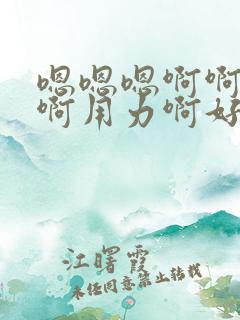 嗯嗯嗯啊啊
啊用力啊好
江曙霞
未经同意禁止转载